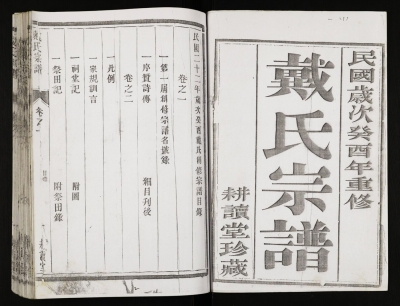 民國歲次癸酉年重修
戴氏宗譜
耕讀堂珍藏
民國二十二年歲次癸酉戴氏重修宗譜目錄
卷之一
一第一屆編修宗譜名號錄
一序贊詩傳 細目列後
卷之二
一凡例
一家規訓言
一祠堂記 附圖
一祭田記 附祭田錄
戴氏宗譜
卷之一
目錄